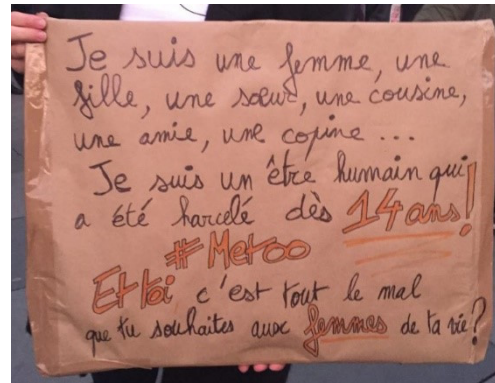 Je suis une femme, une
fille, une sœur, une cousine,
une amie, une copine ...
Je suis un être humain qui
a été harcelé dès 14 ans!
#Metoo
Et toi c'est tout le mal
que tu souhaites aux femmes de ta vie?